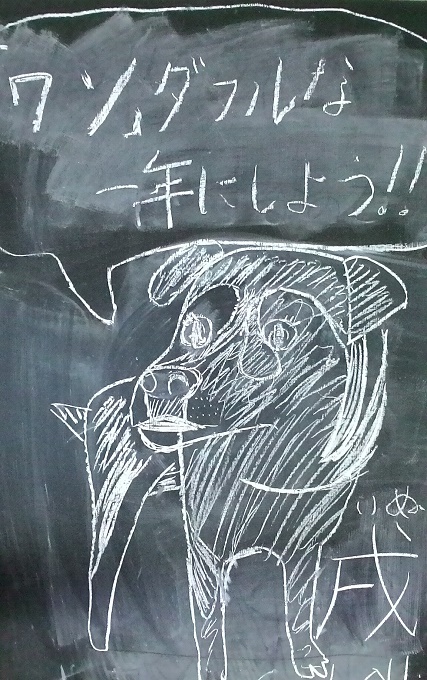 ワンダフルな
一年にしよう!!
いぬ
戌